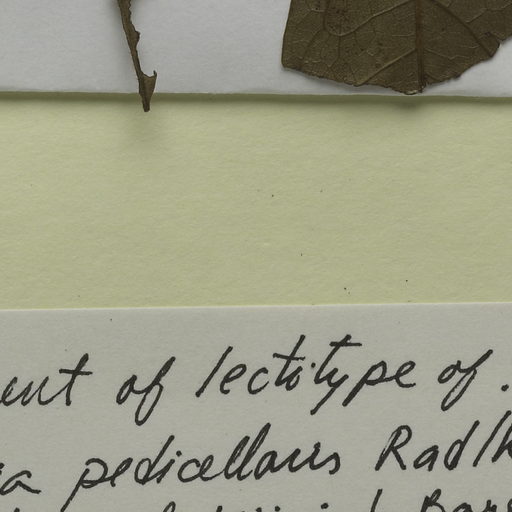 ent of lectotype of
pedicellaris Radlk